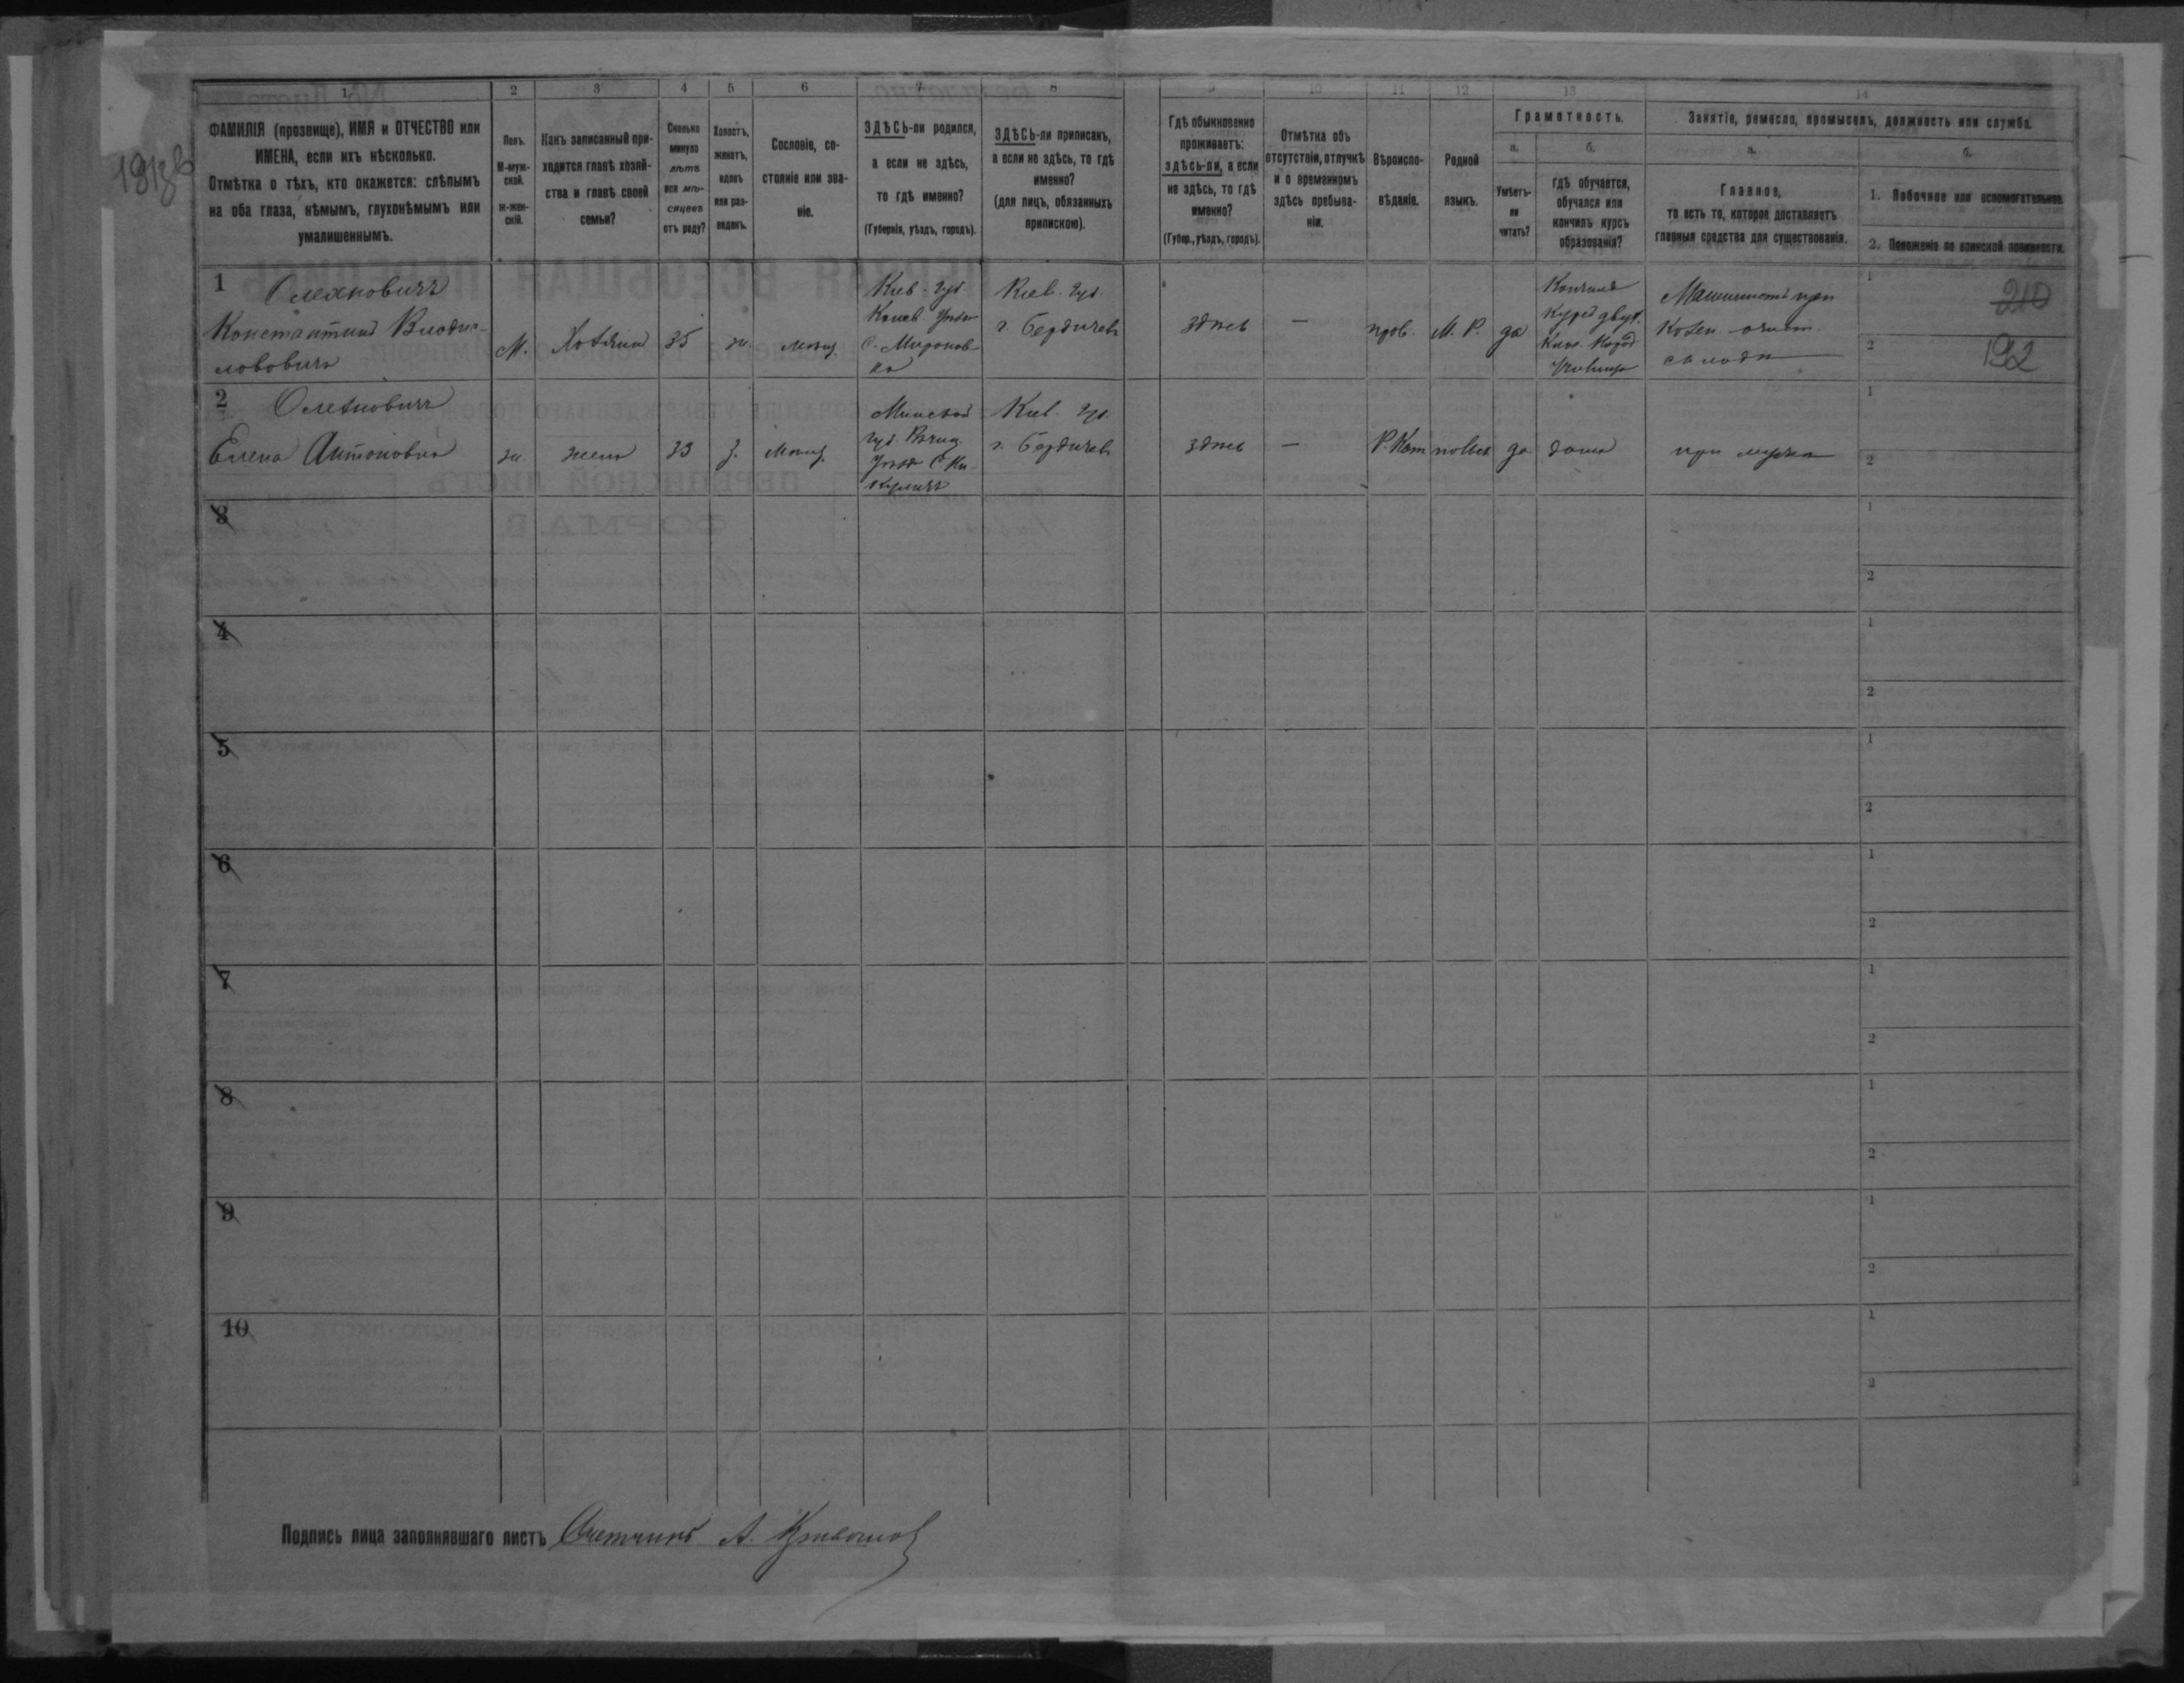 1 2 3 4 5 6 7 8 9 10 11 12 13 14
ФАМИЛІЯ (прозвище), ИМЯ и ОТЧЕСТВО или
ИМЕНА, если ихъ нѣсколько.
Отмѣтка о тѣхъ, кто окажется: слѣпымъ
на оба глаза, нѣмымъ, глухонѣмымъ или
умалишеннымъ.
Полъ.
М-муж-
ской.
ж-жен-
скій.
Какъ записанный при-
ходится главѣ хозяй-
ства и главѣ своей
семьи?
Сколько
минуло
лѣтъ
или мѣ-
сяцевъ
отъ роду?
Холостъ,
женатъ,
вдовъ
или раз-
веденъ.
Сословіе, со-
стояніе или зва-
ніе.
ЗДѢСЬ-ли родился,
а если не здѣсь,
то гдѣ именно?
(Губернія, уѣздъ, городъ).
ЗДѢСЬ-ли приписанъ,
а если не здѣсь, то гдѣ
именно?
(для лицъ, обязанныхъ
припискою).
Гдѣ обыкновенно
проживаетъ:
здѣсь-ли, а если
не здѣсь, то гдѣ
именно?
(Губер., уѣздъ, городъ).
Отмѣтка объ
отсутствіи, отлучкѣ
и о временномъ
здѣсь пребыва-
ніи.
Вѣроиспо-
вѣданіе.
Родной
языкъ.
Грамотность.
а.
Умѣетъ-
ли
читать?
б.
гдѣ обучается,
обучался или
кончилъ курсъ
образованія?
Занятіе, ремесло, промыселъ, должность или служба.
а.
Главное,
то есть то, которое доставляетъ
главныя средства для существованія.
б.
1. Побочное или вспомогательное.
2. Положеніе по воинской повинности.
1
Константинъ Владис-
лововичъ
М.
Хозяинъ
35
ж.
мѣщ.
Кіев. губ.
Канев. Уѣзда
С. Миронов
ка
Кіев. губ.
г. Бердичевъ
здѣсь
—
прав.
М. Р.
да
Кончилъ
Курсъ двух.
Училищ
Машинистъ при
1
210
2
192
2
Елена Антоновна
ж.
жена
33
з.
мѣщ.
Минской
губ. Рѣчиц.
Кіев. губ.
г. Бердичевъ
здѣсь
—
Р. Кат
польск
да
дома
при мужѣ
1
2
3
1
2
4
1
2
5
1
2
6
1
2
7
1
2
8
1
2
9
1
2
10
1
2
Подпись лица заполнявшаго листъ Счетчикъ А.